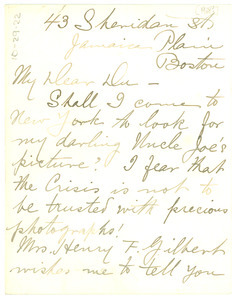 43 Sheridan St.
Jamaica Plain
Boston
My Dear Du —
Shall I come to
New York to look for
my darling Uncle Joe's
picture? I fear that
the Crisis is not to
be trusted with precious
photographs!
Mrs. Henry F. Gilbert
wishes me to tell you